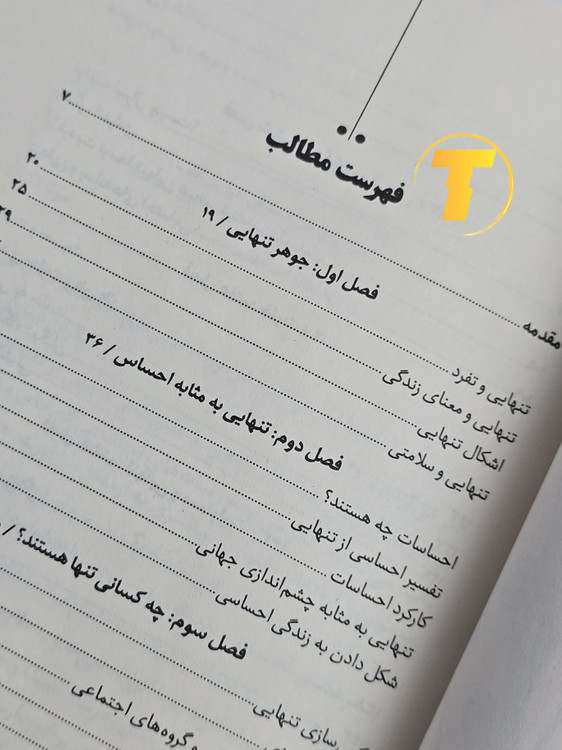 T
فهرست مطالب
مقدمه ........ ۷
فصل اول: جوهر تنهایی / ۱۹
تنهایی و تفرد ........ ۲۰
تنهایی و معنای زندگی ........ ۲۵
اشکال تنهایی ........ ۲۹
تنهایی و سلامتی ........
فصل دوم: تنهایی به مثابه احساس / ۳۶
احساسات چه هستند؟ ........
تفسیر احساسی از تنهایی ........
کارکرد احساسات ........
تنهایی به مثابه چشم‌اندازی جهانی ........
شکل دادن به زندگی احساسی ........
فصل سوم: چه کسانی تنها هستند؟ /
سازی تنهایی ........
و گروه‌های اجتماعی ........